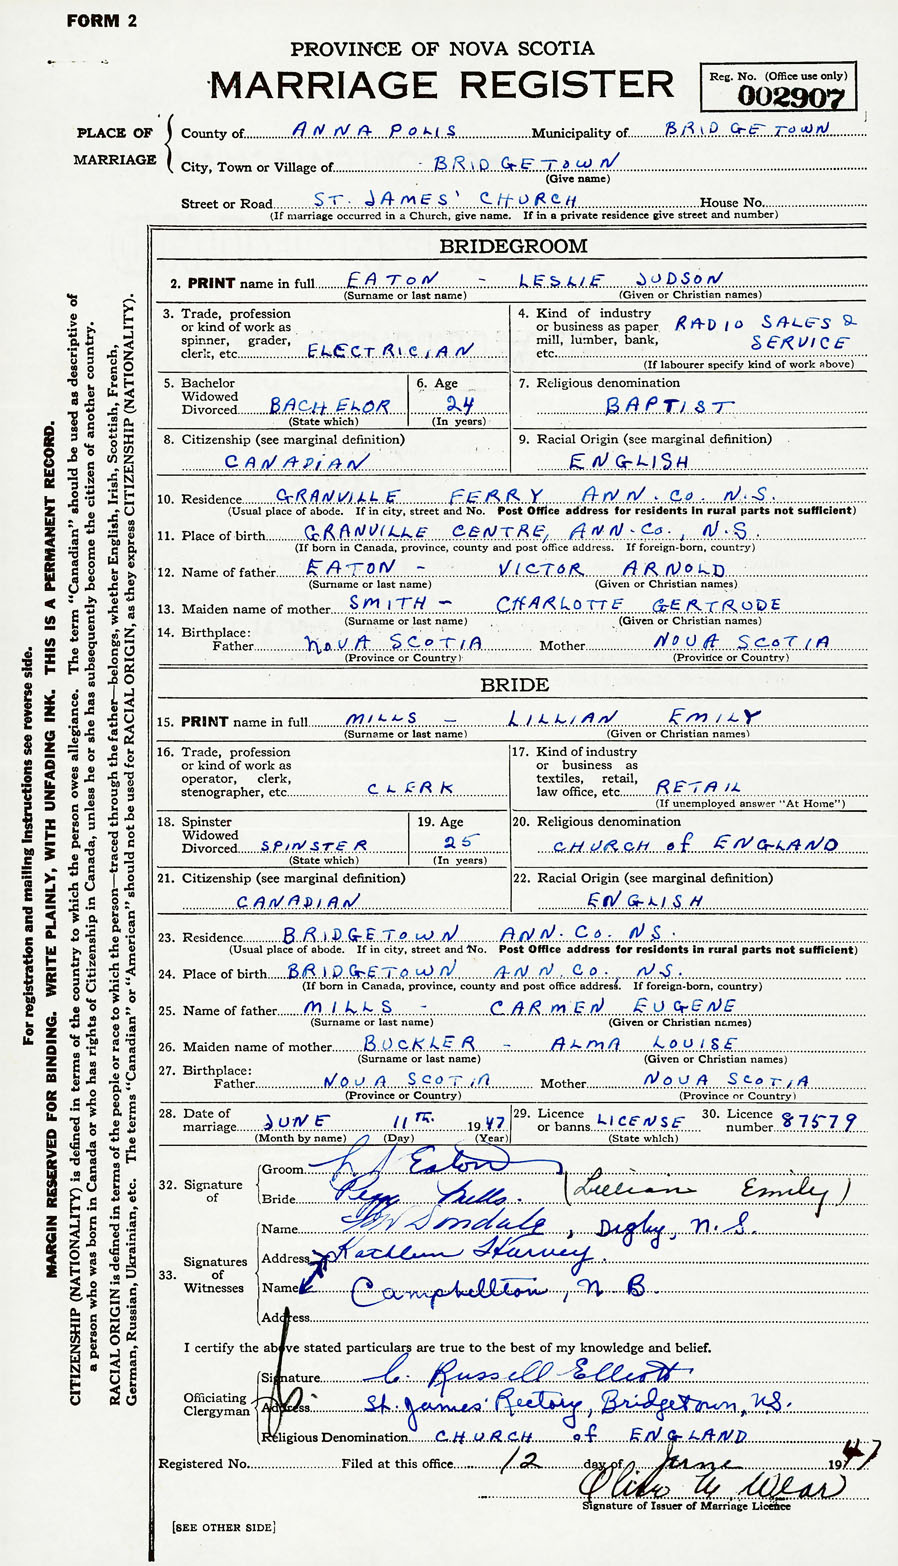 FORM 2
PROVINCE OF NOVA SCOTIA
MARRIAGE REGISTER
Reg. No. (Office use only)
002907
PLACE OF MARRIAGE
County of ANNAPOLIS Municipality of BRIDGETOWN
City, Town or Village of BRIDGETOWN
(Give name)
Street or Road ST. JAMES' CHURCH House No.
(If marriage occurred in a Church, give name. If in a private residence give street and number)
BRIDEGROOM
2. PRINT name in full EATON - LESLIE JUDSON
(Surname or last name) (Given or Christian names)
3. Trade, profession or kind of work as spinner, grader, clerk, etc. ELECTRICIAN
4. Kind of industry or business as paper mill, lumber, bank, etc. RADIO SALES & SERVICE
(If labourer specify kind of work above)
5. Bachelor Widowed Divorced BACHELOR
(State which)
6. Age 24
(In years)
7. Religious denomination
BAPTIST
8. Citizenship (see marginal definition)
CANADIAN
9. Racial Origin (see marginal definition)
ENGLISH
10. Residence GRANVILLE FERRY ANN. CO. N.S.
(Usual place of abode. If in city, street and No. Post Office address for residents in rural parts not sufficient)
11. Place of birth GRANVILLE CENTRE, ANN. CO., N.S.
(If born in Canada, province, county and post office address. If foreign-born, country)
12. Name of father EATON - VICTOR ARNOLD
(Surname or last name) (Given or Christian names)
13. Maiden name of mother SMITH - CHARLOTTE GERTRUDE
(Surname or last name) (Given or Christian names)
14. Birthplace:
Father NOVA SCOTIA Mother NOVA SCOTIA
(Province or Country) (Province or Country)
BRIDE
15. PRINT name in full MILLS - LILLIAN EMILY
(Surname or last name) (Given or Christian names)
16. Trade, profession or kind of work as operator, clerk, stenographer, etc. CLERK
17. Kind of industry or business as textiles, retail, law office, etc. RETAIL
(If unemployed answer "At Home")
18. Spinster Widowed Divorced SPINSTER
(State which)
19. Age 25
(In years)
20. Religious denomination
CHURCH of ENGLAND
21. Citizenship (see marginal definition)
CANADIAN
22. Racial Origin (see marginal definition)
ENGLISH
23. Residence BRIDGETOWN ANN. CO. NS.
(Usual place of abode. If in city, street and No. Post Office address for residents in rural parts not sufficient)
24. Place of birth BRIDGETOWN ANN. CO., NS.
(If born in Canada, province, county and post office address. If foreign-born, country)
25. Name of father MILLS - CARMEN EUGENE
(Surname or last name) (Given or Christian names)
26. Maiden name of mother BUCKLER - ALMA LOUISE
(Surname or last name) (Given or Christian names)
27. Birthplace:
Father NOVA SCOTIA Mother NOVA SCOTIA
(Province or Country) (Province or Country)
28. Date of marriage JUNE 11TH. 1947
(Month by name) (Day) (Year)
29. Licence or banns LICENSE
(State which)
30. Licence number 87579
32. Signature of
Groom L J Eaton
Bride Peggy Mills. (Lillian Emily)
33. Signatures of Witnesses
Name Dondale, Digby, N.S.
Address Kathleen Harvey.
Name Campbellton, N B.
Address
I certify the above stated particulars are true to the best of my knowledge and belief.
Officiating Clergyman
Signature C. Russell Elliott
Address St. James' Rectory, Bridgetown, N.S.
Religious Denomination CHURCH of ENGLAND
Registered No. Filed at this office 12 day of June 1947
Wear
Signature of Issuer of Marriage Licence
[SEE OTHER SIDE]
For registration and mailing instructions see reverse side.
MARGIN RESERVED FOR BINDING. WRITE PLAINLY, WITH UNFADING INK. THIS IS A PERMANENT RECORD.
CITIZENSHIP (NATIONALITY) is defined in terms of the country to which the person owes allegiance. The term "Canadian" should be used as descriptive of
a person who was born in Canada or who has rights of Citizenship in Canada, unless he or she has subsequently become the citizen of another country.
RACIAL ORIGIN is defined in terms of the people or race to which the person—traced through the father—belongs, whether English, Irish, Scottish, French,
German, Russian, Ukrainian, etc. The terms "Canadian" or "American" should not be used for RACIAL ORIGIN, as they express CITIZENSHIP (NATIONALITY).